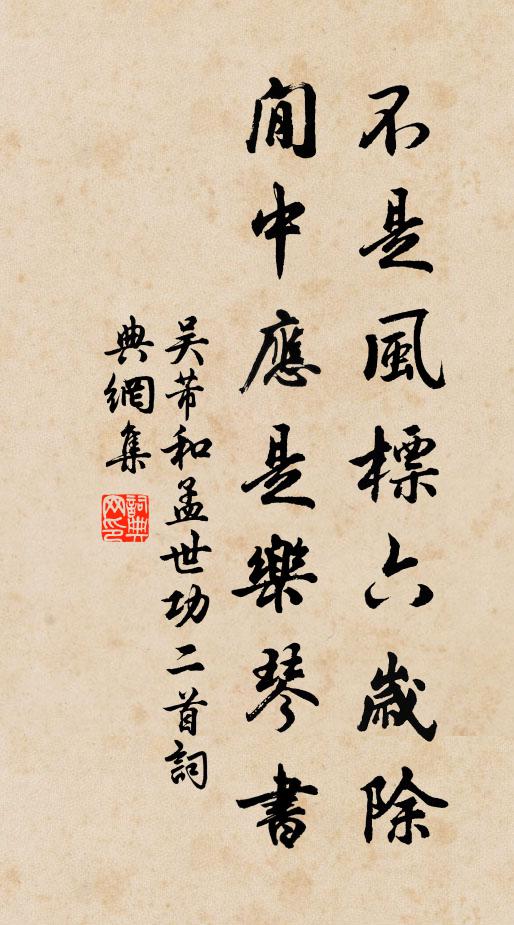 不是風標六歲除
閒中應是樂琴書
吴芾和孟世功二首詞
典網集
詞典网印